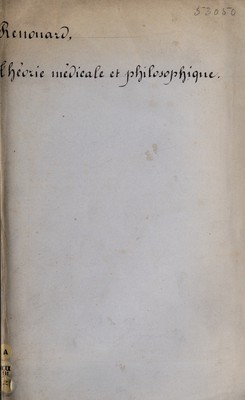 53050
Renouard,
théorie médicale et philosophique.
A